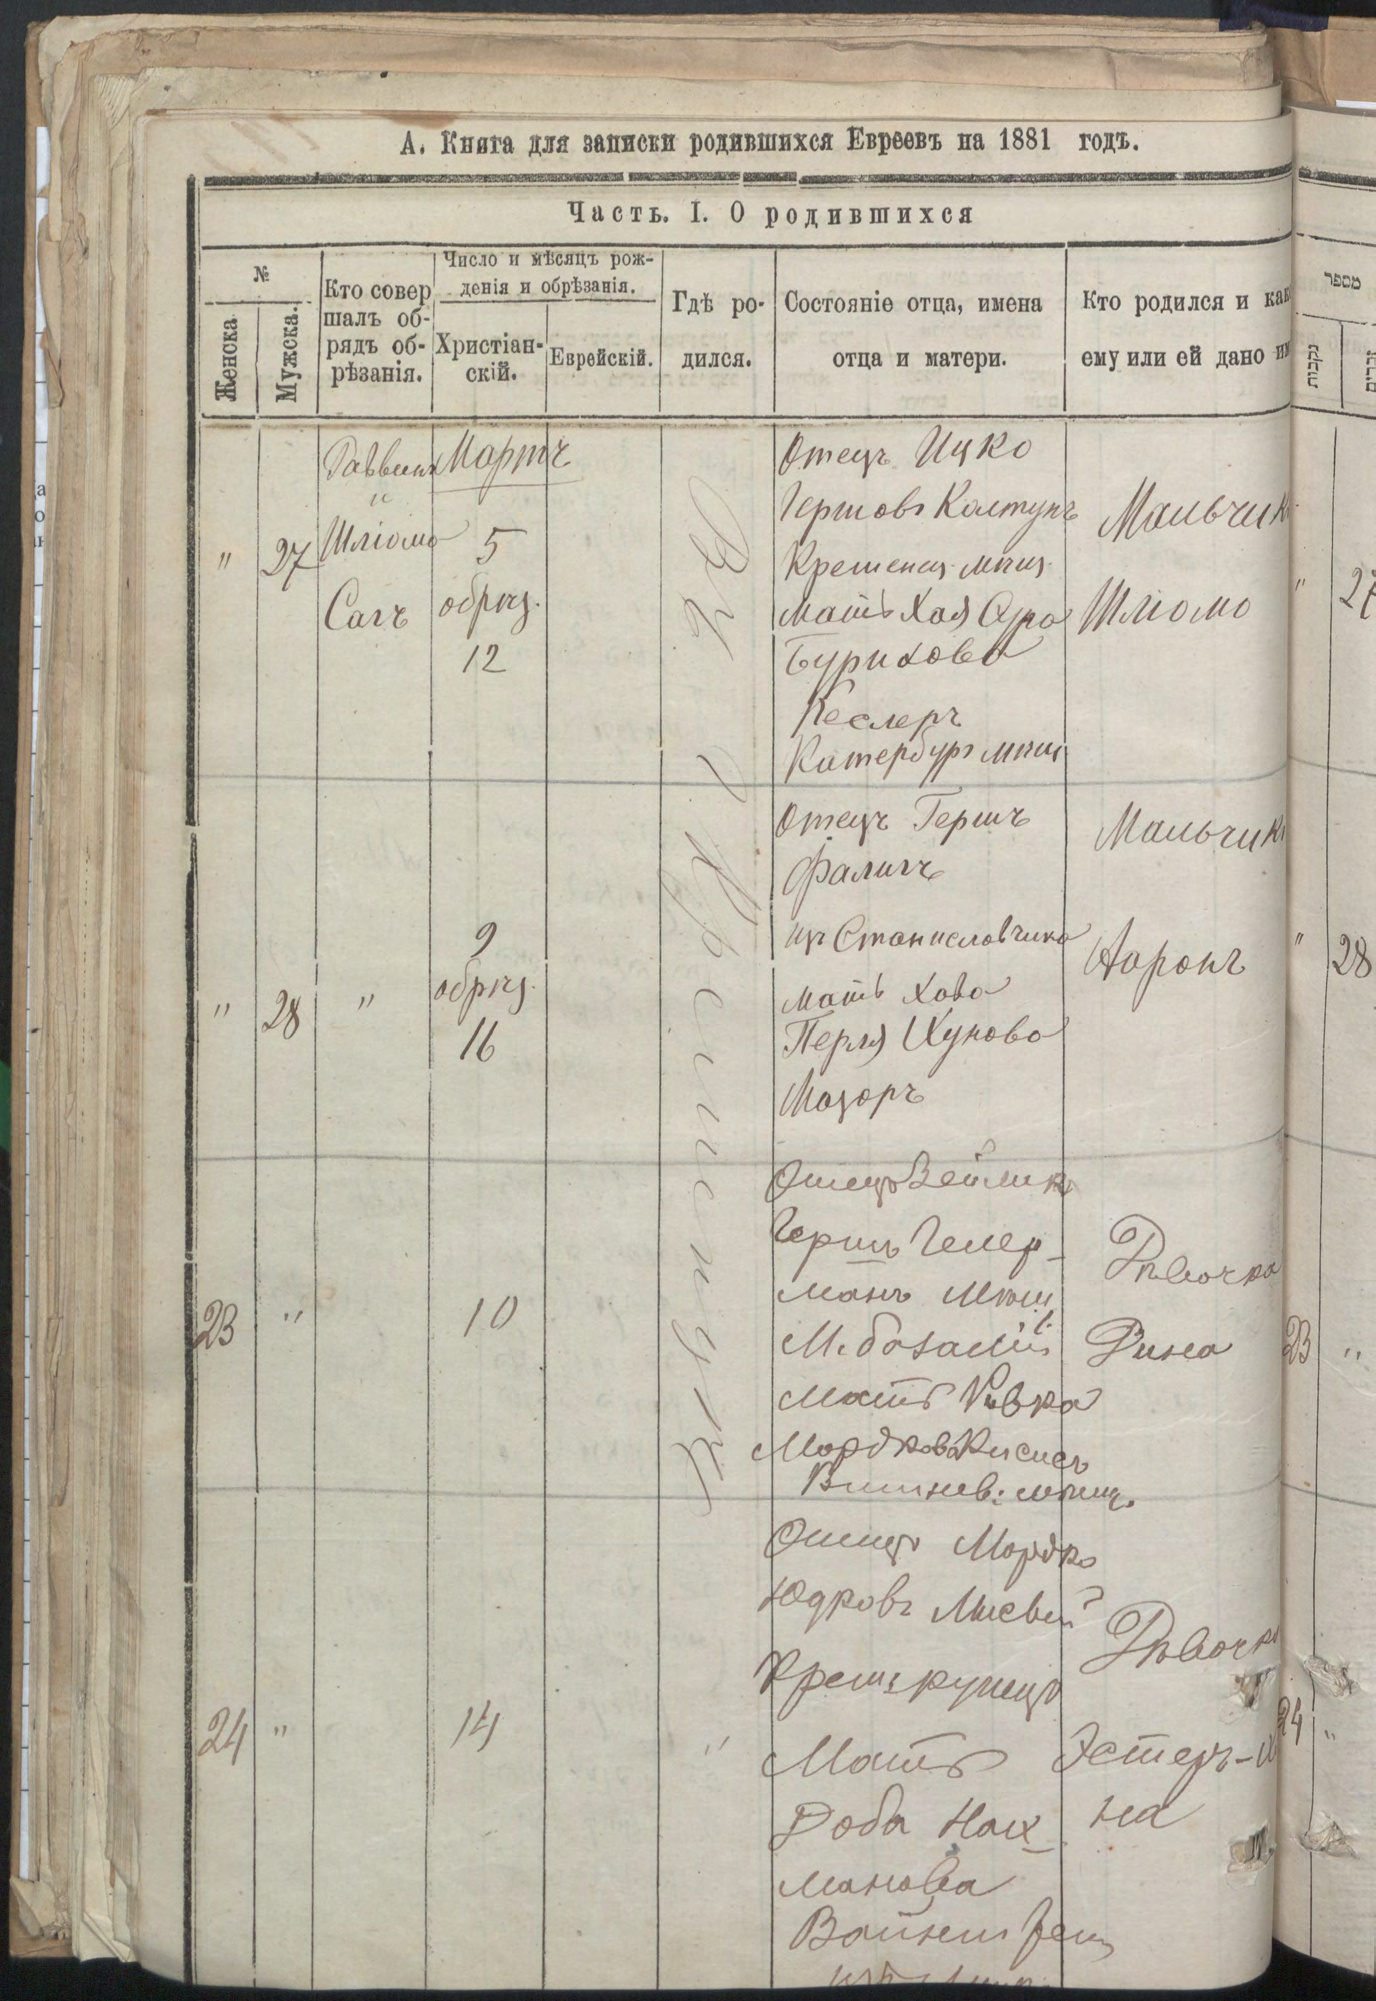 А. Книга для записки родившихся Евреевъ на 1881 годъ.
Часть. I. О родившихся
№
Женска
Мужска.
Кто совер
шалъ об-
рядъ об-
рѣзанія.
Число и мѣсяцъ рож-
денія и обрѣзанія.
Христіан-
скій.
Еврейскій.
Гдѣ ро-
дился.
Состояніе отца, имена
отца и матери.
Кто родился и как
ему или ей дано им
מספר
נקבות
זכרים
"
27
Раввинъ
"
Шліомо
Сагъ
Мартъ
5
обрѣз.
12
Въ г Кременцѣ
Отецъ Ицко
Гершовъ Колтунъ
Кременец. мѣщ.
Мать Хая Сура
Бурихова
Кеслеръ
Катербургъ мѣщ
Мальчикъ
Шліомо
"
27
"
28
"
9
обрѣз.
16
Отецъ Гершъ
Фаличъ
изъ Станиславчика
Мать Хова
Перля
Мазоръ
Мальчикъ
Аронъ
"
28
23
"
10
Отецъ Зейликъ
Гершъ Гелер-
манъ Мѣщ
Мать Ривка
Мордкова
Вишнев: мѣщ.
Дѣвочка
Рина
23
"
24
"
14
"
Отецъ Мордко
Юдковъ
Крем: купецъ
Мать
Роба Нах-
манова
Дѣвочка
Эстеръ-
на
24
"